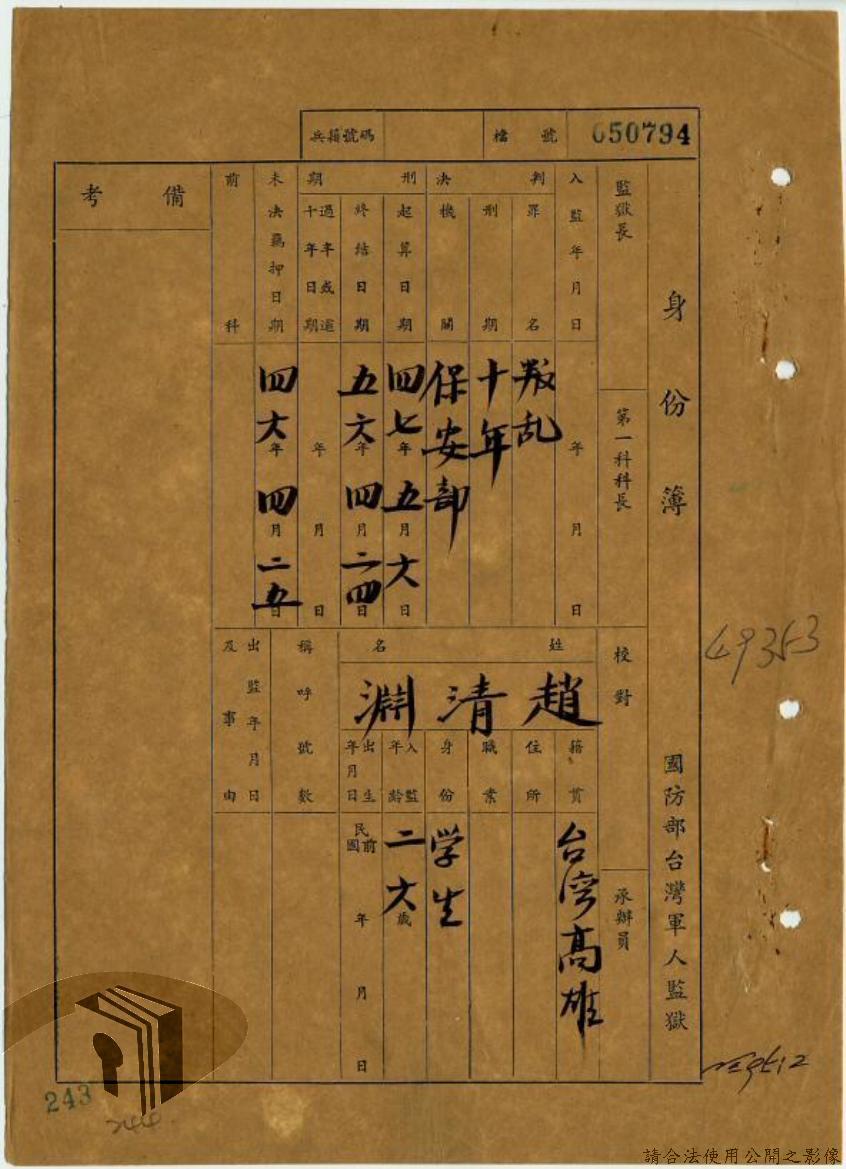 兵籍號碼
檔號 050794
身份簿 國防部台灣軍人監獄
監獄長
第一科科長
校對
承辦員
入監年月日 年 月 日
判決
罪名 叛乱
刑期 十年
機關 保安部
刑期
起算日期 四七年五月六日
終結日期 五六年四月二四日
年 月 日
未決羈押日期 四六年四月二五日
前科
備考
姓名
趙清淵
籍貫 台湾高雄
住所
職業
身份 学生
入監年齡 二六歲
出生年月日 民國前 年 月 日
稱呼號數
出監年月日及事由
49353
243
244
請合法使用公開之影像